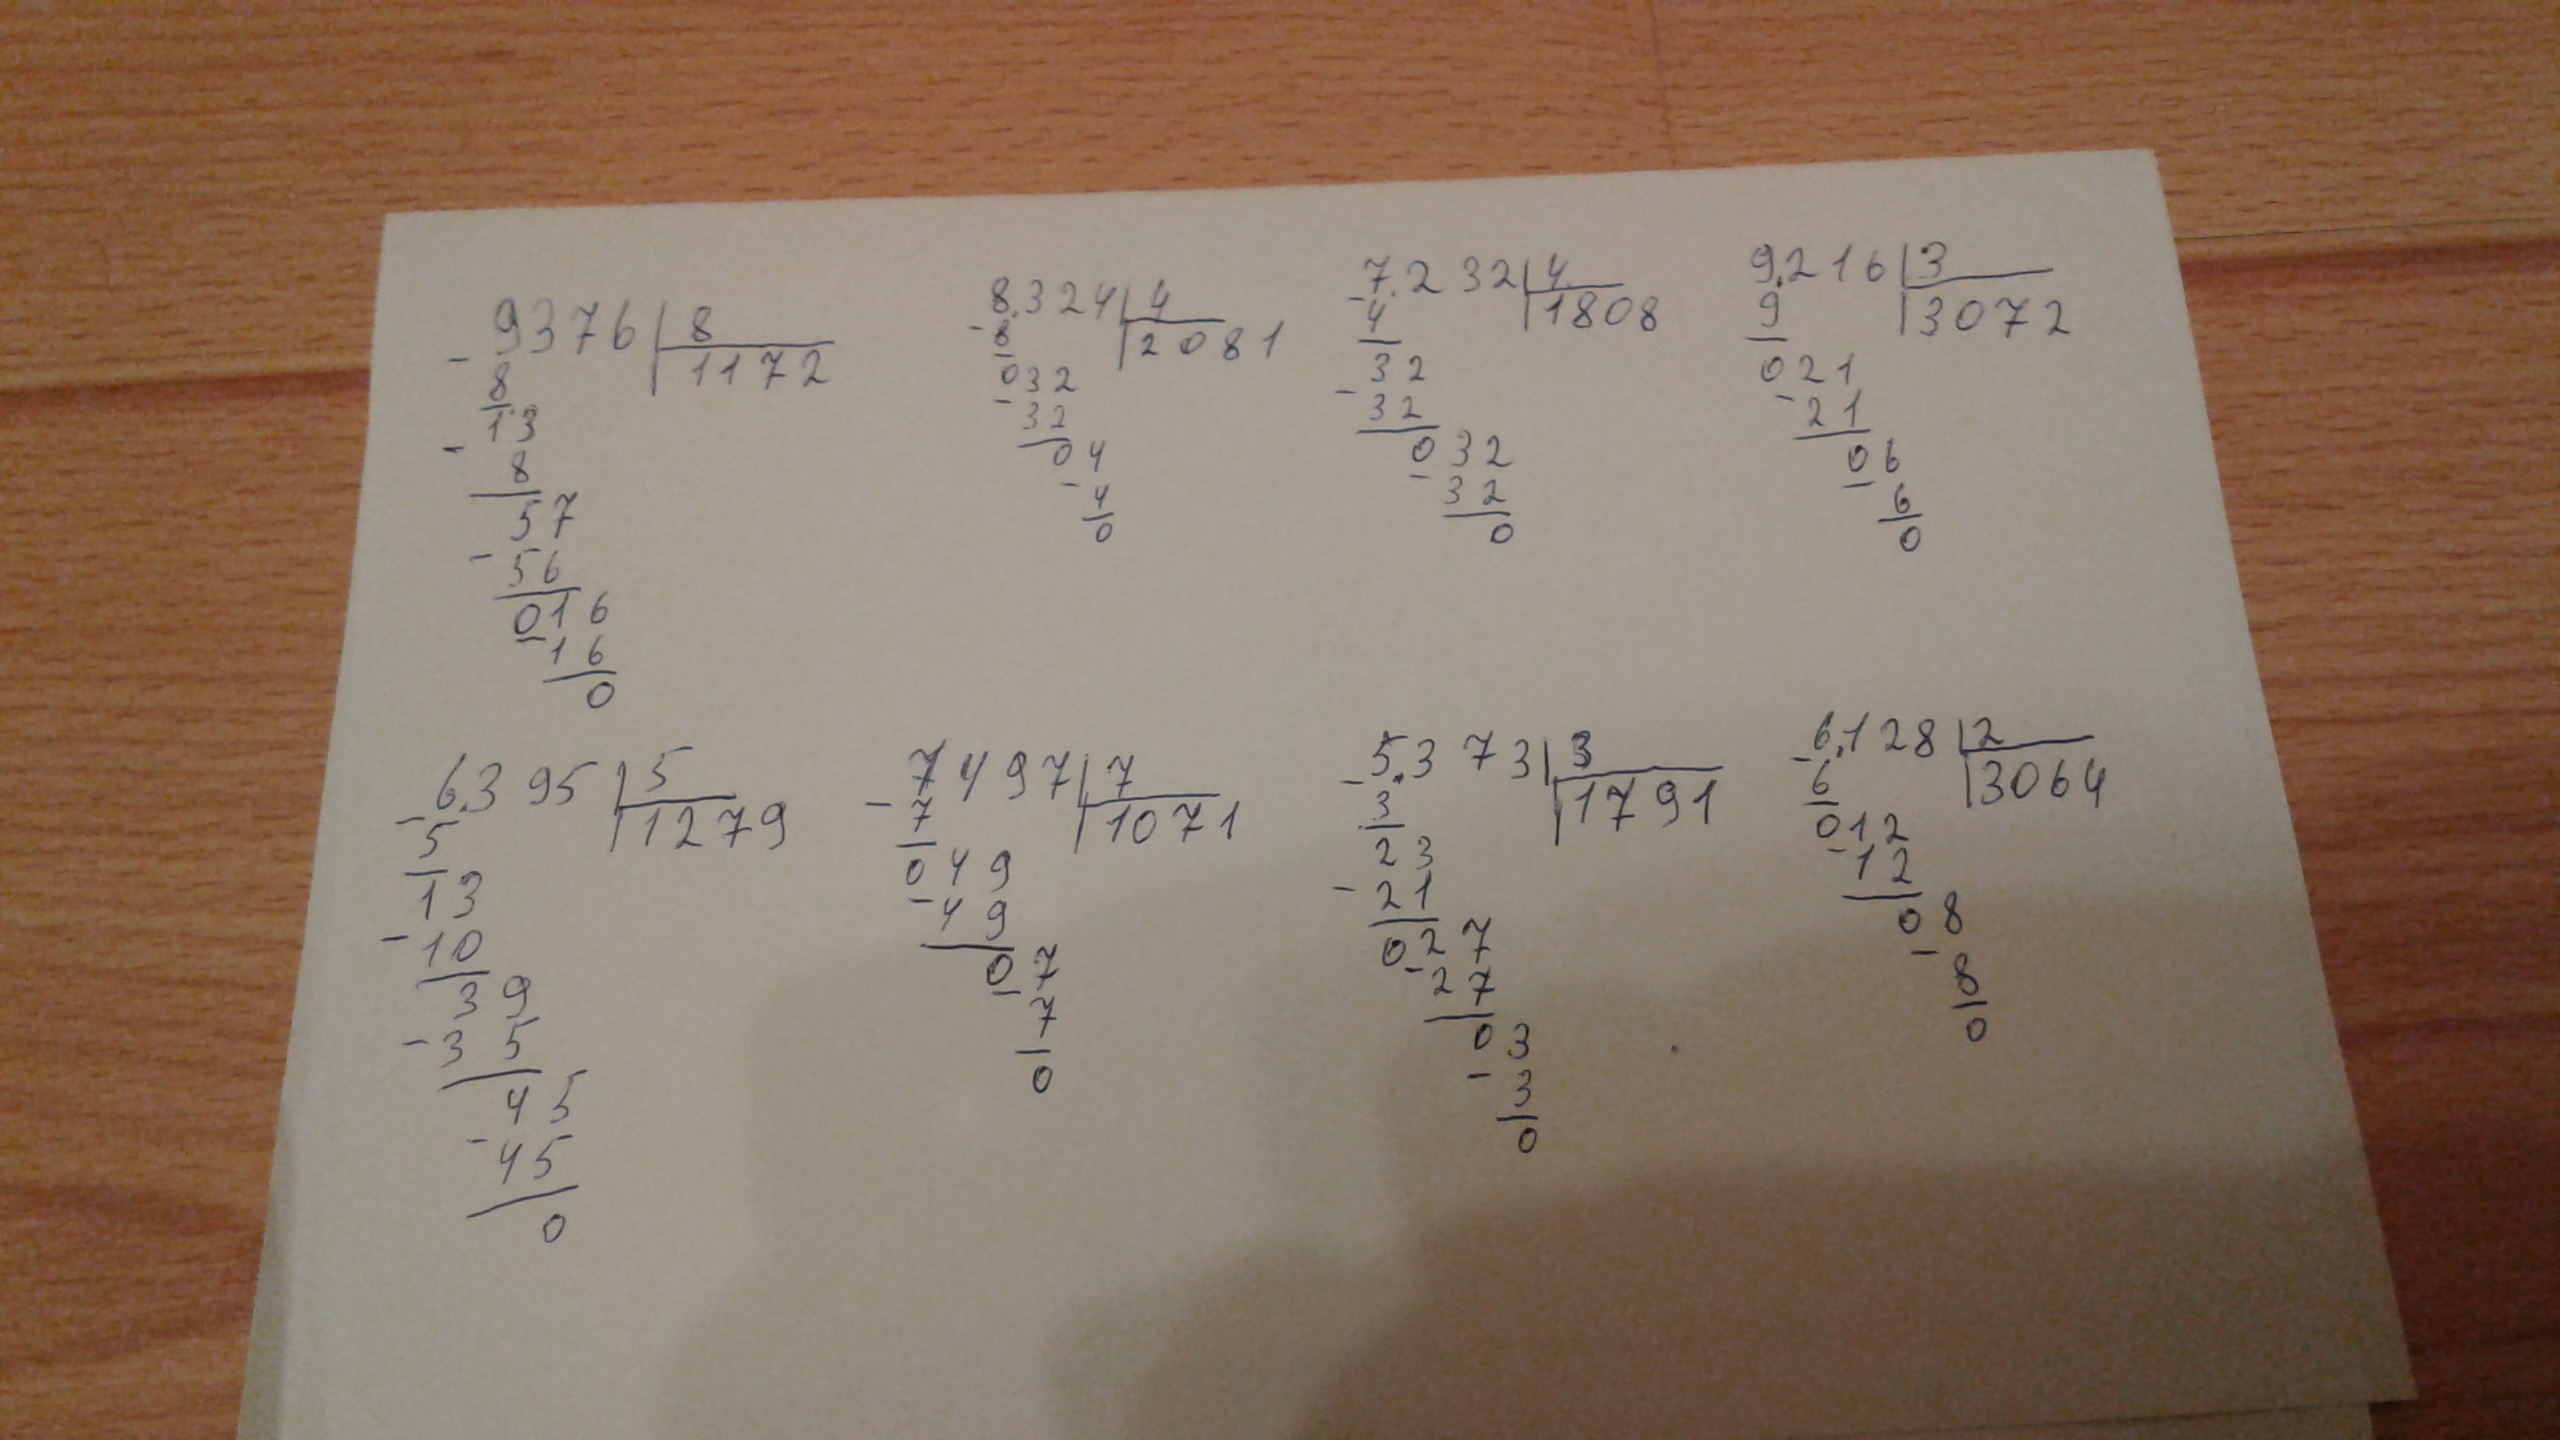 9376 | 8
1172
- 8
13
- 8
57
- 56
016
- 16
0
8.324 | 4
2081
- 8
032
- 32
04
- 4
0
7.232 | 4
1808
- 4
32
- 32
032
- 32
0
9.216 | 3
3072
9
021
- 21
06
- 6
0
6.395 | 5
1279
- 5
13
- 10
39
- 35
45
- 45
0
7497 | 7
1071
- 7
049
- 49
07
- 7
0
5.373 | 3
1791
- 3
23
- 21
027
- 27
03
- 3
0
6.128 | 2
3064
- 6
012
- 12
08
- 8
0